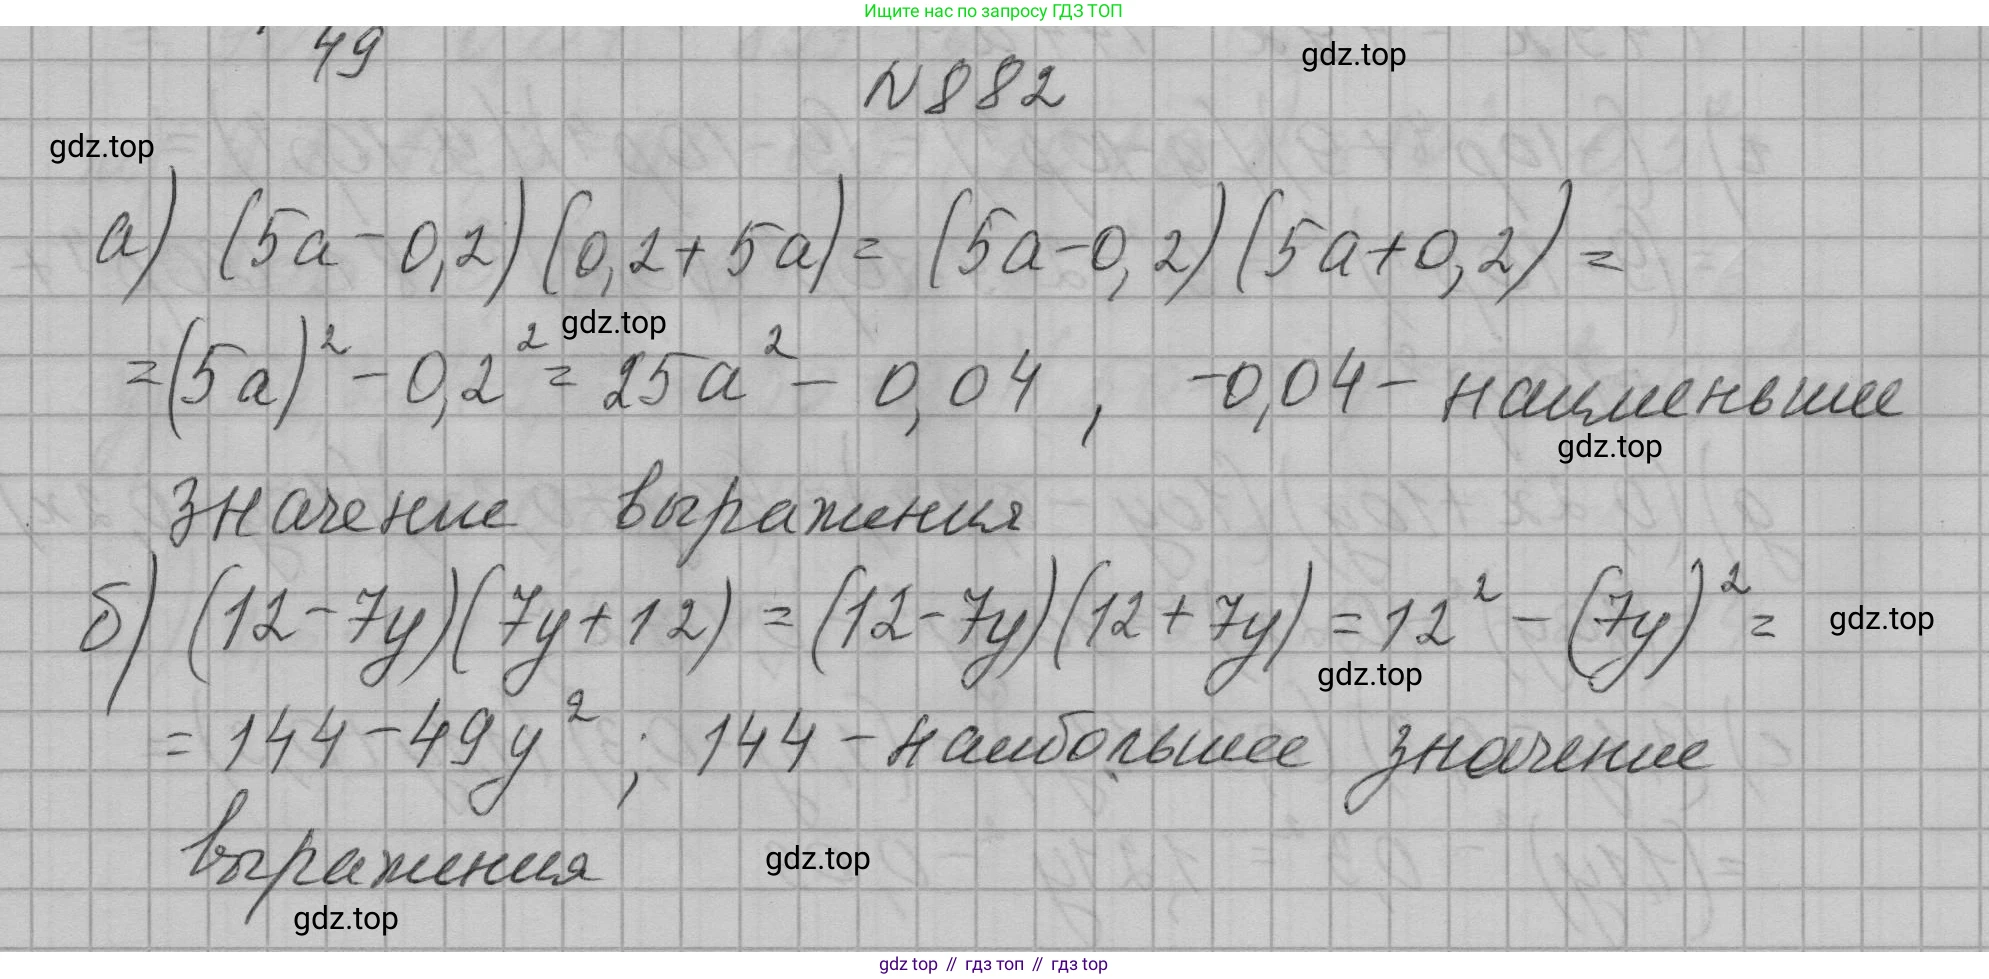 Ищите нас по запросу ГДЗ ТОП
49
N882
gdz.top
gdz.top
а) (5a-0,2)(0,2+5a)=(5a-0,2)(5a+0,2)=
gdz.top
=(5a)²-0,2²=25a²-0,04, -0,04- наименьшее
gdz.top
значение выражения
б) (12-7y)(7y+12)=(12-7y)(12+7y)=12²-(7y)²=
gdz.top
gdz.top
=144-49y²; 144-наибольшее значение
выражения
gdz.top
gdz.top
gdz top // гдз топ // gdz top